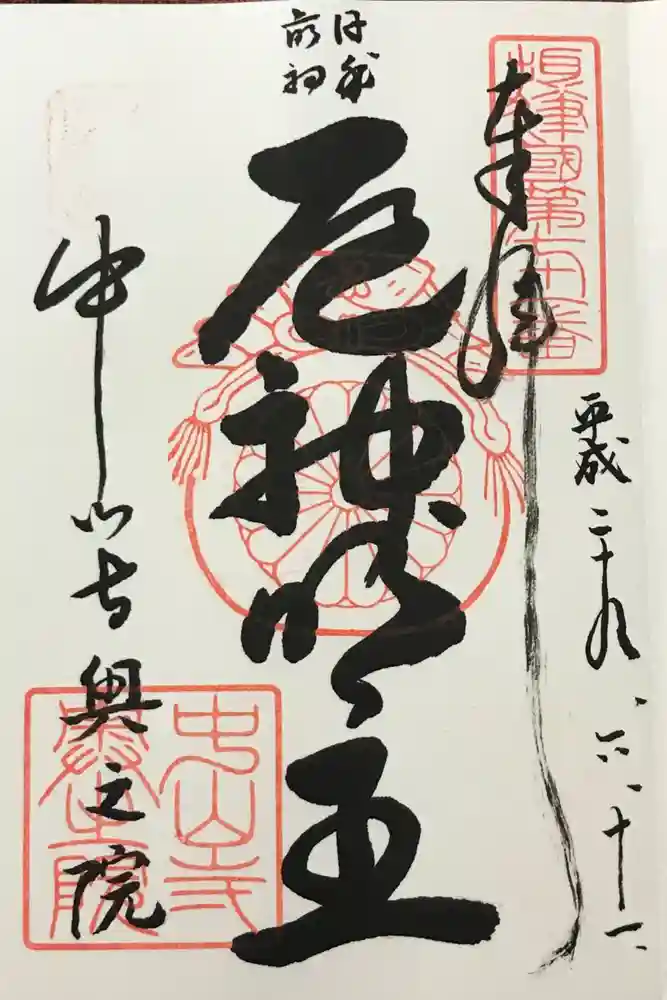 奉拝
平成二十九、六、十一、
日本
最初
厄神明王
中山寺奥之院
中山寺
奥之院